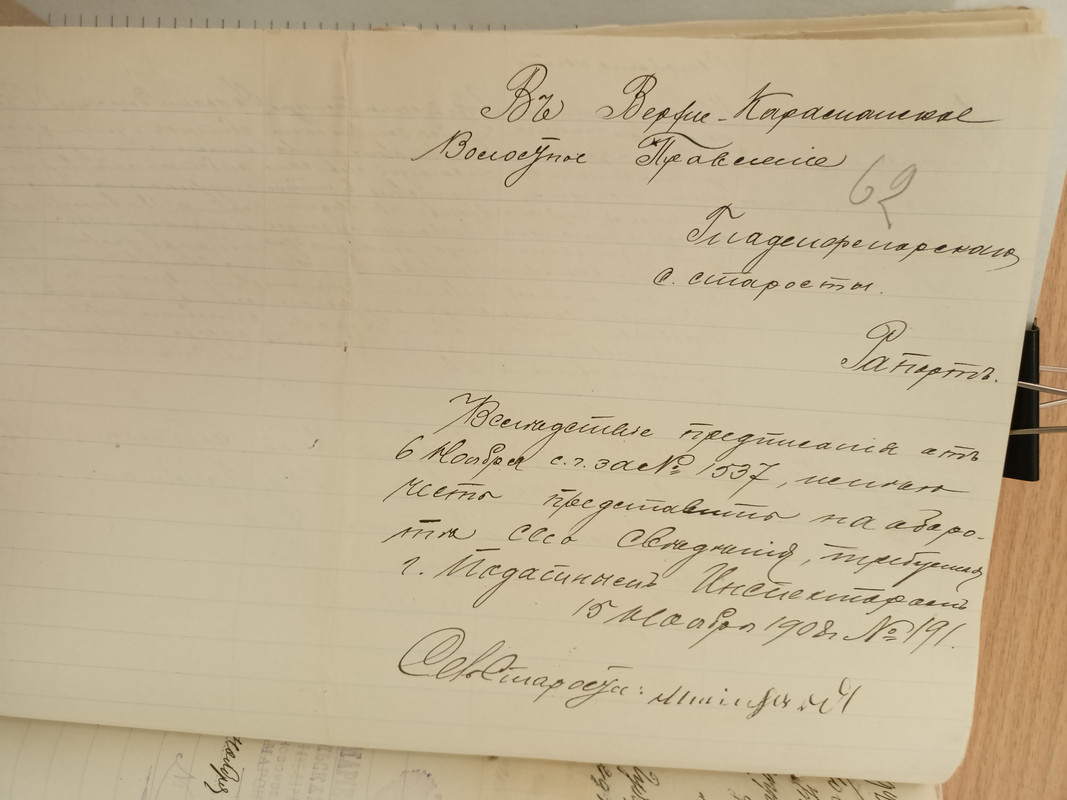 Въ Верхне-Карасланское
Волостное Правленіе
62
Гнаденфельдскаго
с. старосты.
Рапортъ.
Вслѣдствіе предписанія отъ
6 Ноября с. г. за № 1537, имѣю
честь представить на оборо-
тѣ сего свѣдѣнія, требуемыя
г. Податнымъ Инспекторомъ
15 Ноября 1908 г. № 191.
Сел. Староста:
Ноября